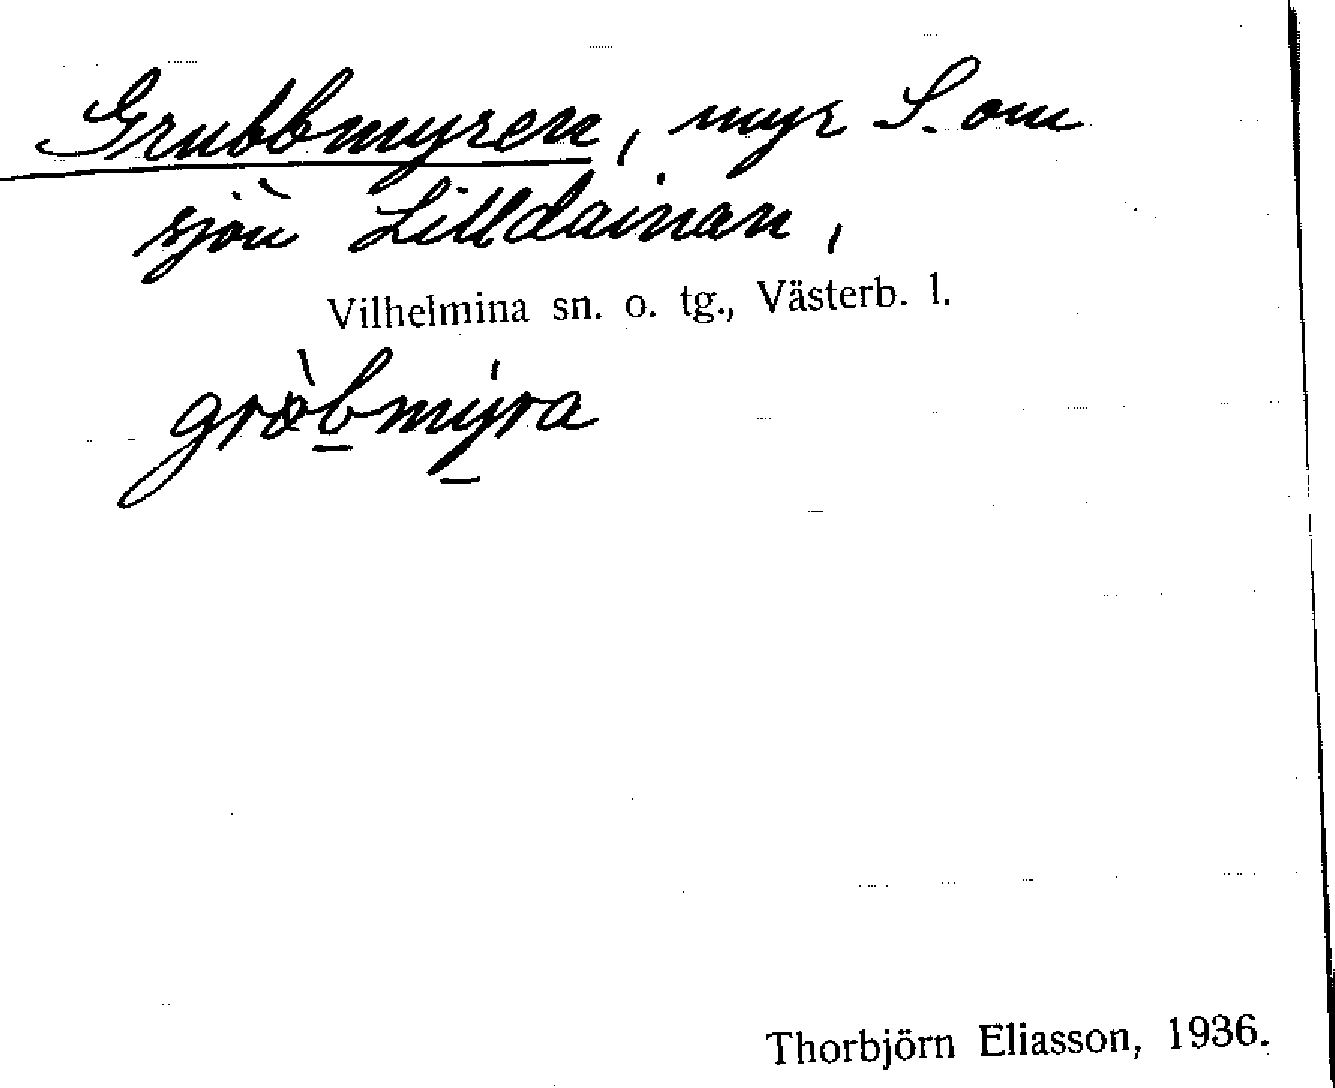 Grubbmyren, myr S. om
sjön Lilldainan,
Vilhelmina sn. o. tg., Västerb. l.
Thorbjörn Eliasson, 1936.